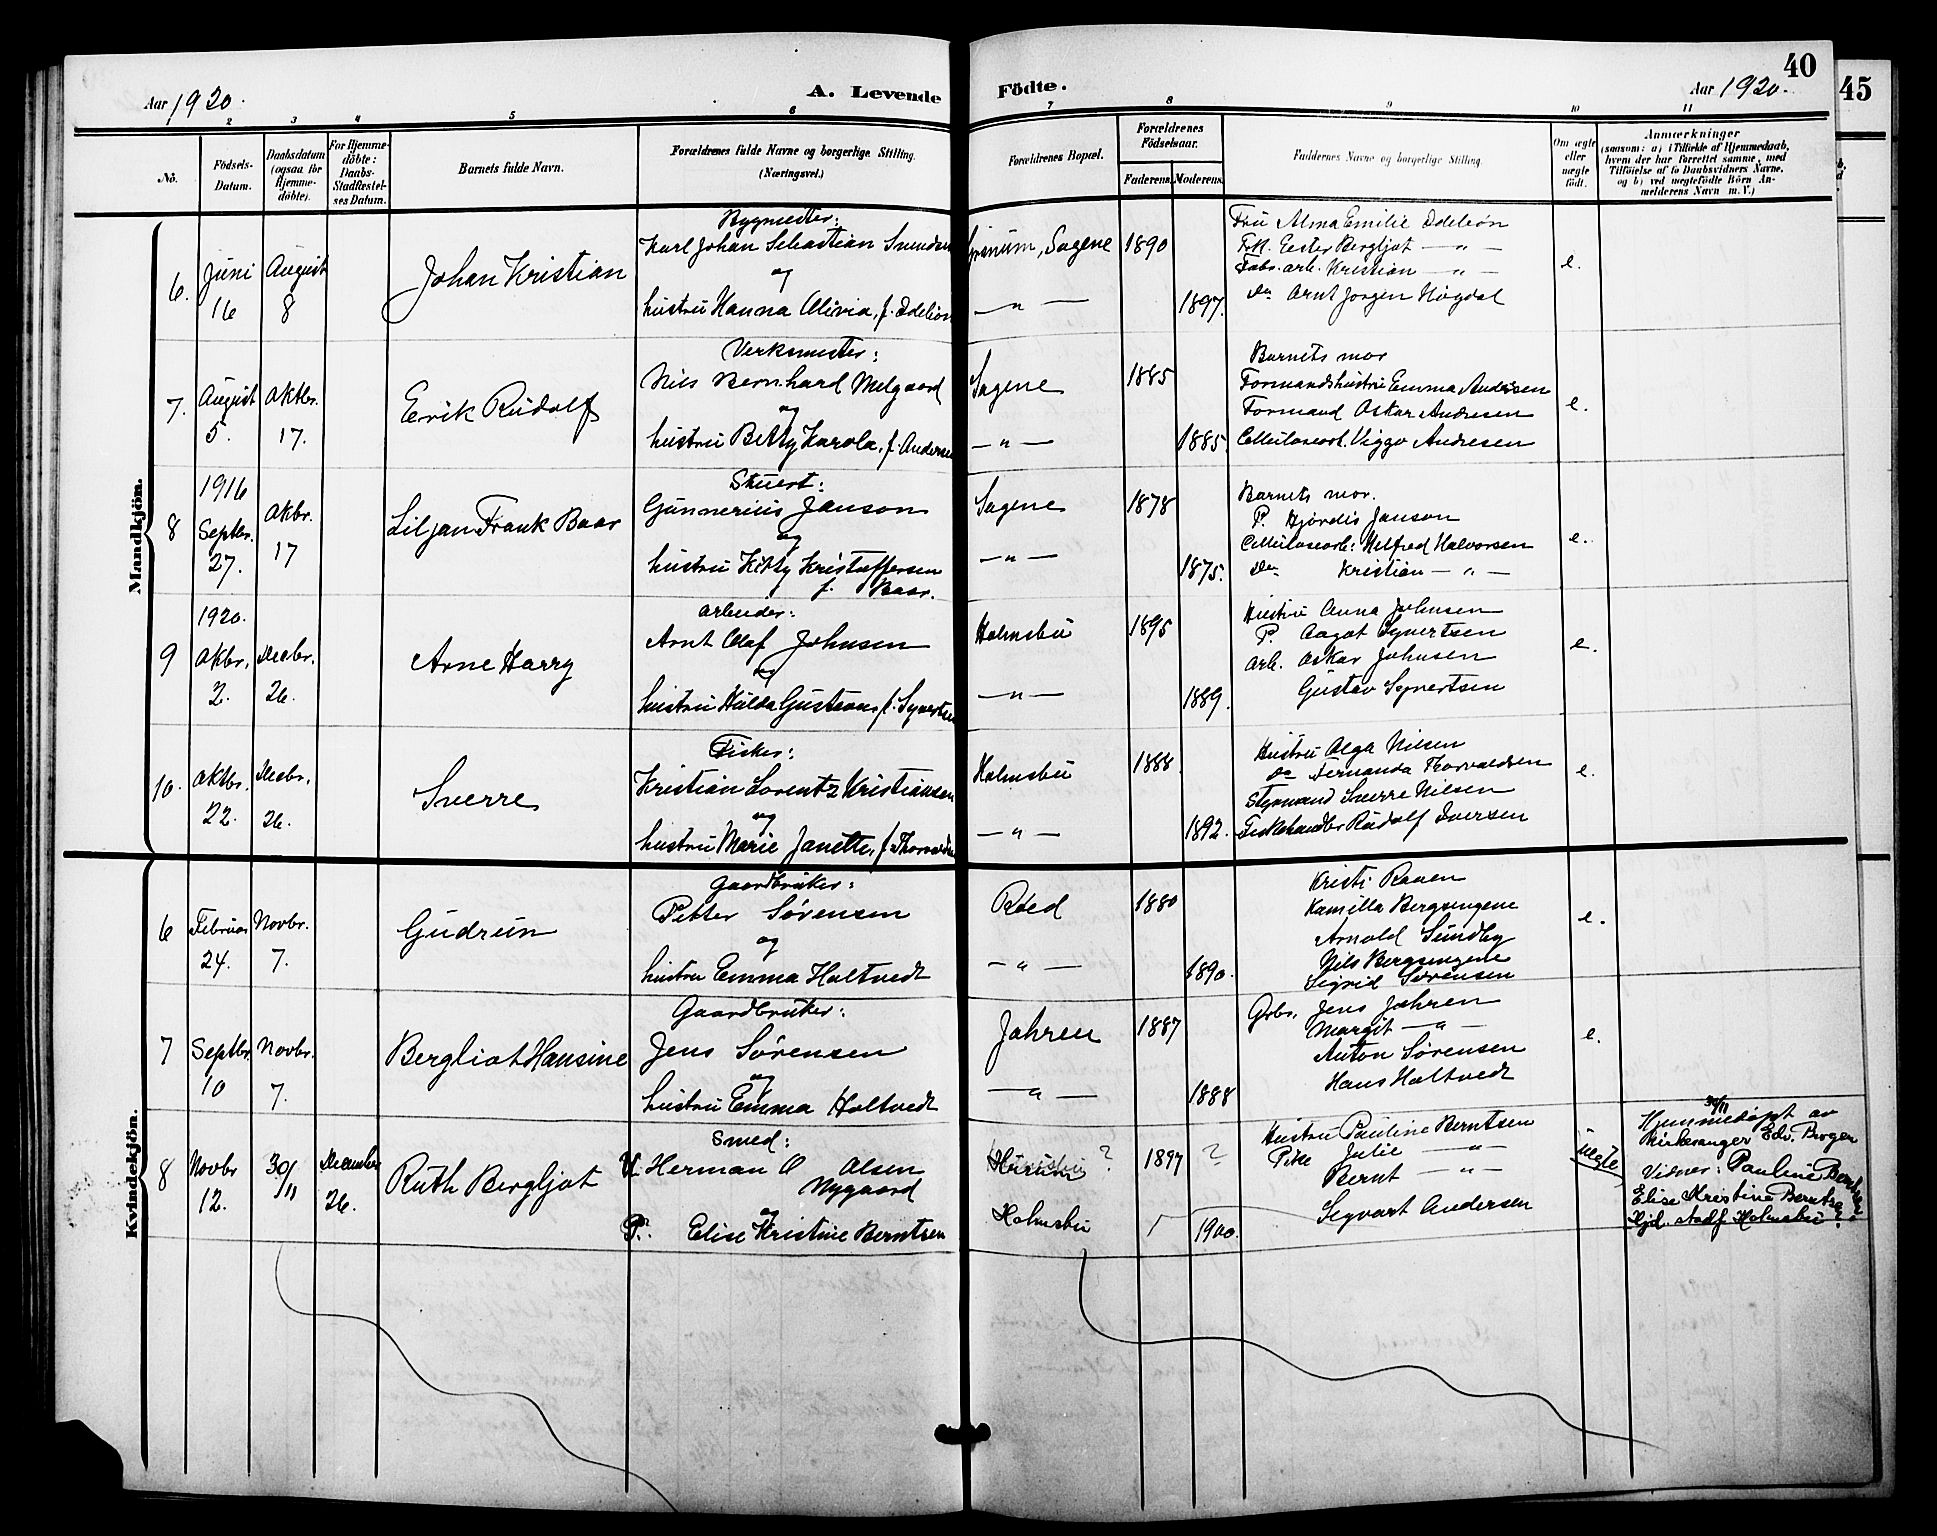 40
45
Aar 1920.
A. Levende
Födte.
Aar 1920.
2 3 4 5 6 7 8 9 10 11
No.
Födsels-
Datum.
Daabsdatum
(ogsaa for
Hjemme-
döbte).
For Hjemme-
döbte:
Daabs-
Stadfæstel-
ses Datum.
Barnets fulde Navn.
Forældrenes fulde Navne og borgerlige Stilling.
(Næringsvei.)
Forældrenes Bopæl.
Forældrenes
Födselsaar.
Faderens. Moderens.
Faddernes Navne og borgerlige Stilling.
Om ægte
eller
uægte
födt.
Anmærkninger
(saasom: a) i Tilfælde af Hjemmedaab,
hvem der har forrettet samme, med
Tilföielse af to Daabsvidners Navne,
og b) ved uægtefödte Börn An-
melderens Navn m. V.)
Mandkjön.
6.
Juni
16
August
8
Johan Kristian
Bygmester:
Karl Johan Sebastian Svendsen
og
hustru Hanna Olivia, f. Edeleön
Grenum, Sagene
— " —
1890
1897.
Fru Alma Emilie Edeleön
Frk. Ester Bergljot — " —
Fabr. arb. Kristian — " —
Do Arnt Jörgen Högdal
e.
7.
August
5.
Oktbr.
17.
Eerik Rudolf
Verksmester:
Nils Bernhard Melgaard
og
hustru Betty Karola, f. Andersen
Sagene
— " —
1885
1885.
Barnets mor
Formandshustru Emma Andresen
Formand Oskar Andresen
Cellulosearb. Viggo Andresen
e.
8
1916
Septbr.
27.
Oktbr.
17
Liljan Frank Baar
Stuert:
Gunnerius Janson
og
hustru Kitty Kristoffersen
f. Baar.
Sagene
— " —
1878
1875.
Barnets mor.
P. Hjördis Janson
Cellulosearb: Wilfred Halvorsen
Do Kristian — " —
e.
9
1920.
Oktbr.
2.
Decbr.
26.
Arne Harry
Arbeider:
Arnt Olaf Johnsen
og
hustru Hulda Gustava, f. Syvertsen
Holmsbu
— " —
1895
1889.
Hustru Anna Johnsen
P. Aagot Syvertsen
Arb. Oskar Johnsen
Gustav Syvertsen
e.
10.
Oktbr.
22.
Decbr.
26.
Sverre
Fisker:
Kristian Lorentz Kristiansen
og
hustru Marie Janette, f. Thorvaldsen
Holmsbu
— " —
1888
1892.
Hustru Olga Nilsen
Do Fernanda Thorvaldsen
Styrmand Sverre Nilsen
Fiskehandler Rudolf Iversen
e.
Kvindekjön.
6
Februar
24.
Novbr.
7.
Gudrun
Gaardbruker:
Petter Sörensen
og
hustru Emma Holtvedt
Röed
— " —
1880
1890.
Kristi Rauen
Kamilla Bergsengene
Arnold Sundby
Nils Bergsengene
Sigrid Sörensen
e.
7
Septbr.
10
Novbr.
7.
Bergliot Hansine
Gaardbruker:
Jens Sörensen
og
hustru Emma Holtvedt
Jahren
— " —
1887
1888
Gbr. Jens Jahren
Margit — " —
Anton Sörensen
Hans Holtvedt
e.
8
Novbr
12.
30/11
December
26.
Ruth Bergljot
Smed:
U. Herman O Olsen
Nygaard
og
P. Elise Kristine Berntsen
Holmsbu
1897 ?
1900.
Hustru Pauline Berntsen
Pike Julie — " —
Bernt — " —
Sigvart Andersen
uegte
30/11
Hjemmedöpt av
Kirkesanger Edv. Broger
Vidner: Pauline Berntsen
Elise Kristine Berntsen
Hjd. stadf. Holmsbu